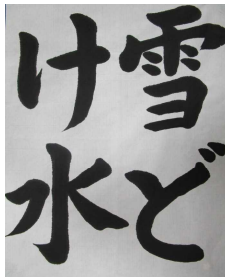 雪ど
け水